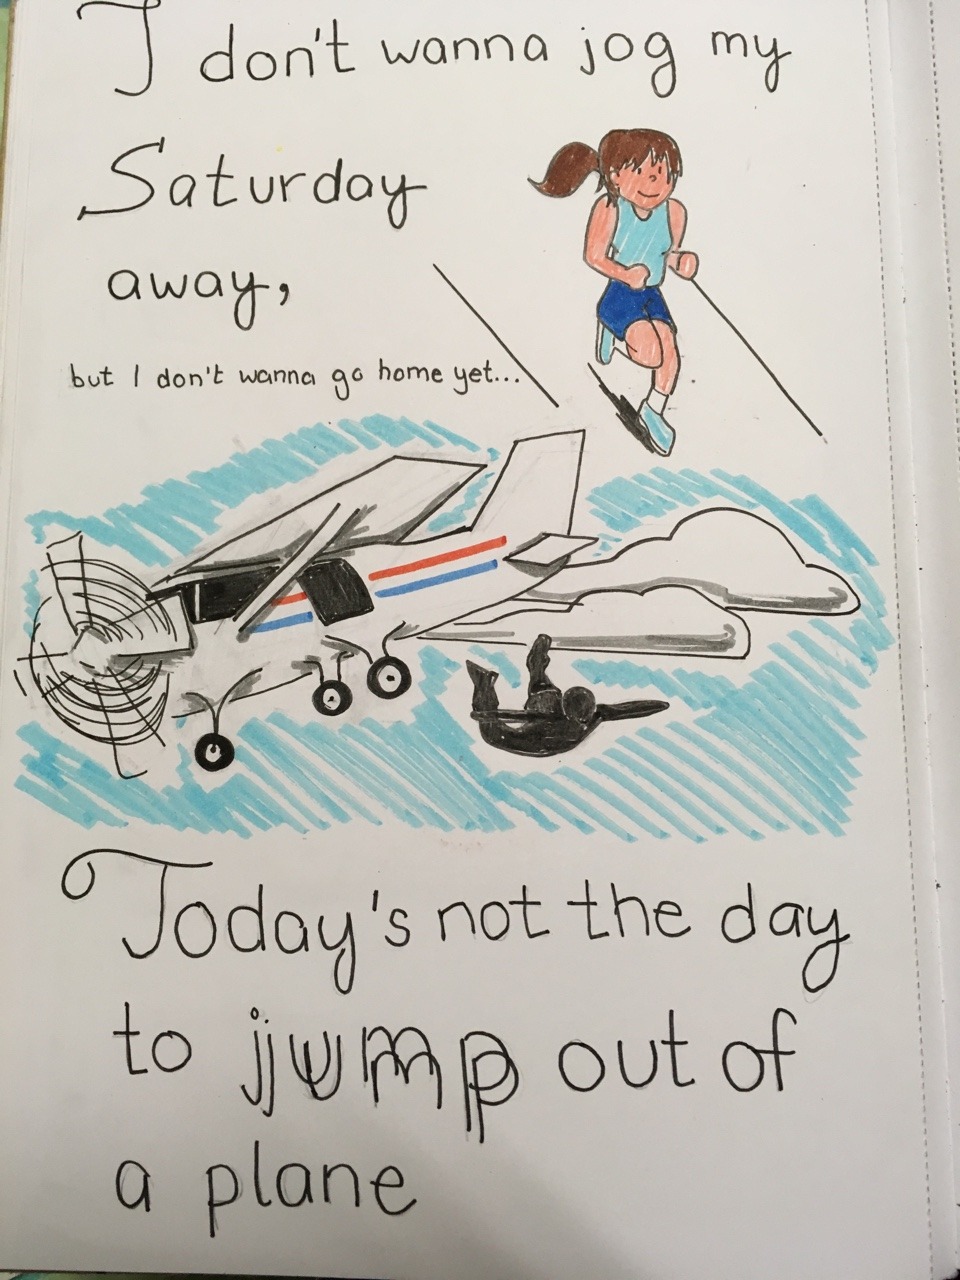 I don't wanna jog my
Saturday
away,
but I don't wanna go home yet...
Today's not the day
to jump out of
a plane